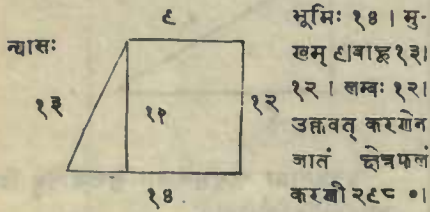 न्यासः
९
१३
१२
१२
१४
भूमिः १४ । मु-
खम् ९।बाहू १३।
१२ । लम्बः १२।
उक्तवत् करणेन
जातं क्षेत्रफलं
करणी २९८ ०।